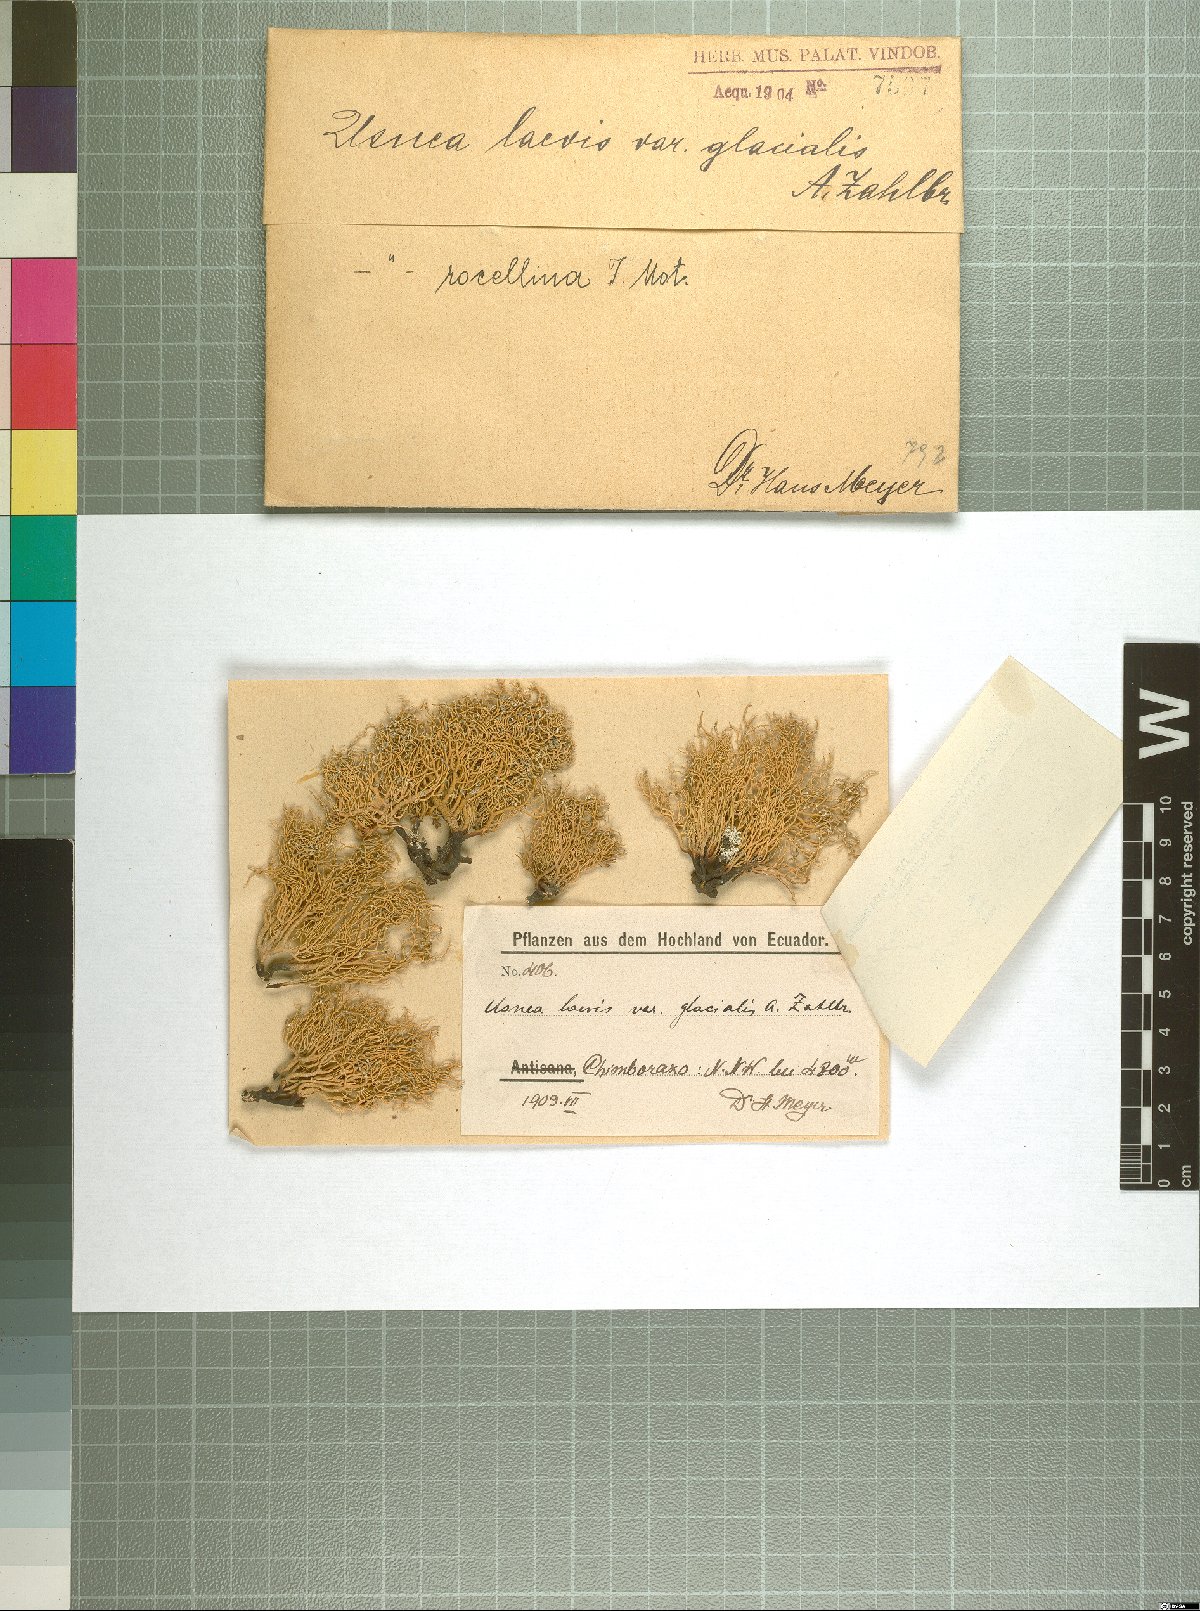 HERB. MUS. PALAT. VINDOB.
Acqu. 1904 No.
Usnea laevis var. glacialis
A. Zahlbr.
—"— rocellina J. Mot.
792
Dr. Hans Meyer
Pflanzen aus dem Hochland von Ecuador.
No. 406.
Usnea laevis var. glacialis A. Zahlbr.
Antisana, Chimborazo: N.N.W. bei 4800 m.
1903. III
Dr H. Meyer
W
copyright reserved
0 1 2 3 4 5 6 7 8 9 10
cm